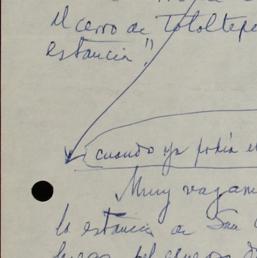 el cerro de Tototepe
estancia"
cuando ya podía e
Muy vagam
la estancia de San
luego